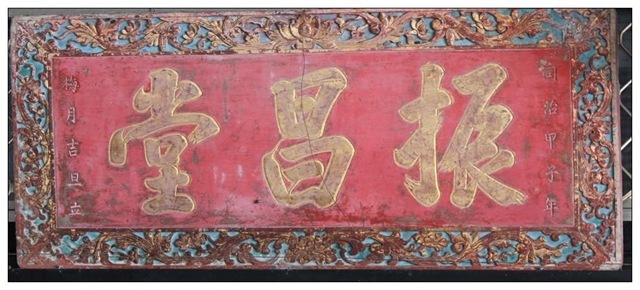 同治甲子年
振昌堂
梅月吉旦立